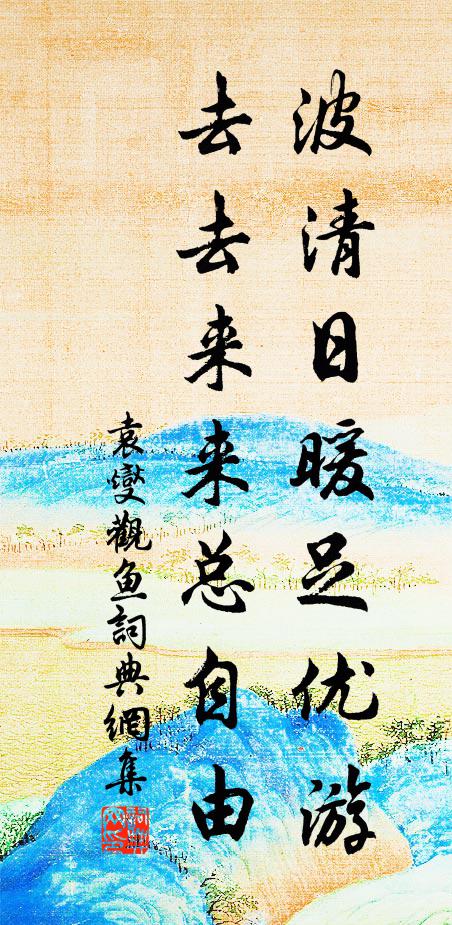 波清日暖足优游
去去来来总自由
袁燮觀鱼詞典網集